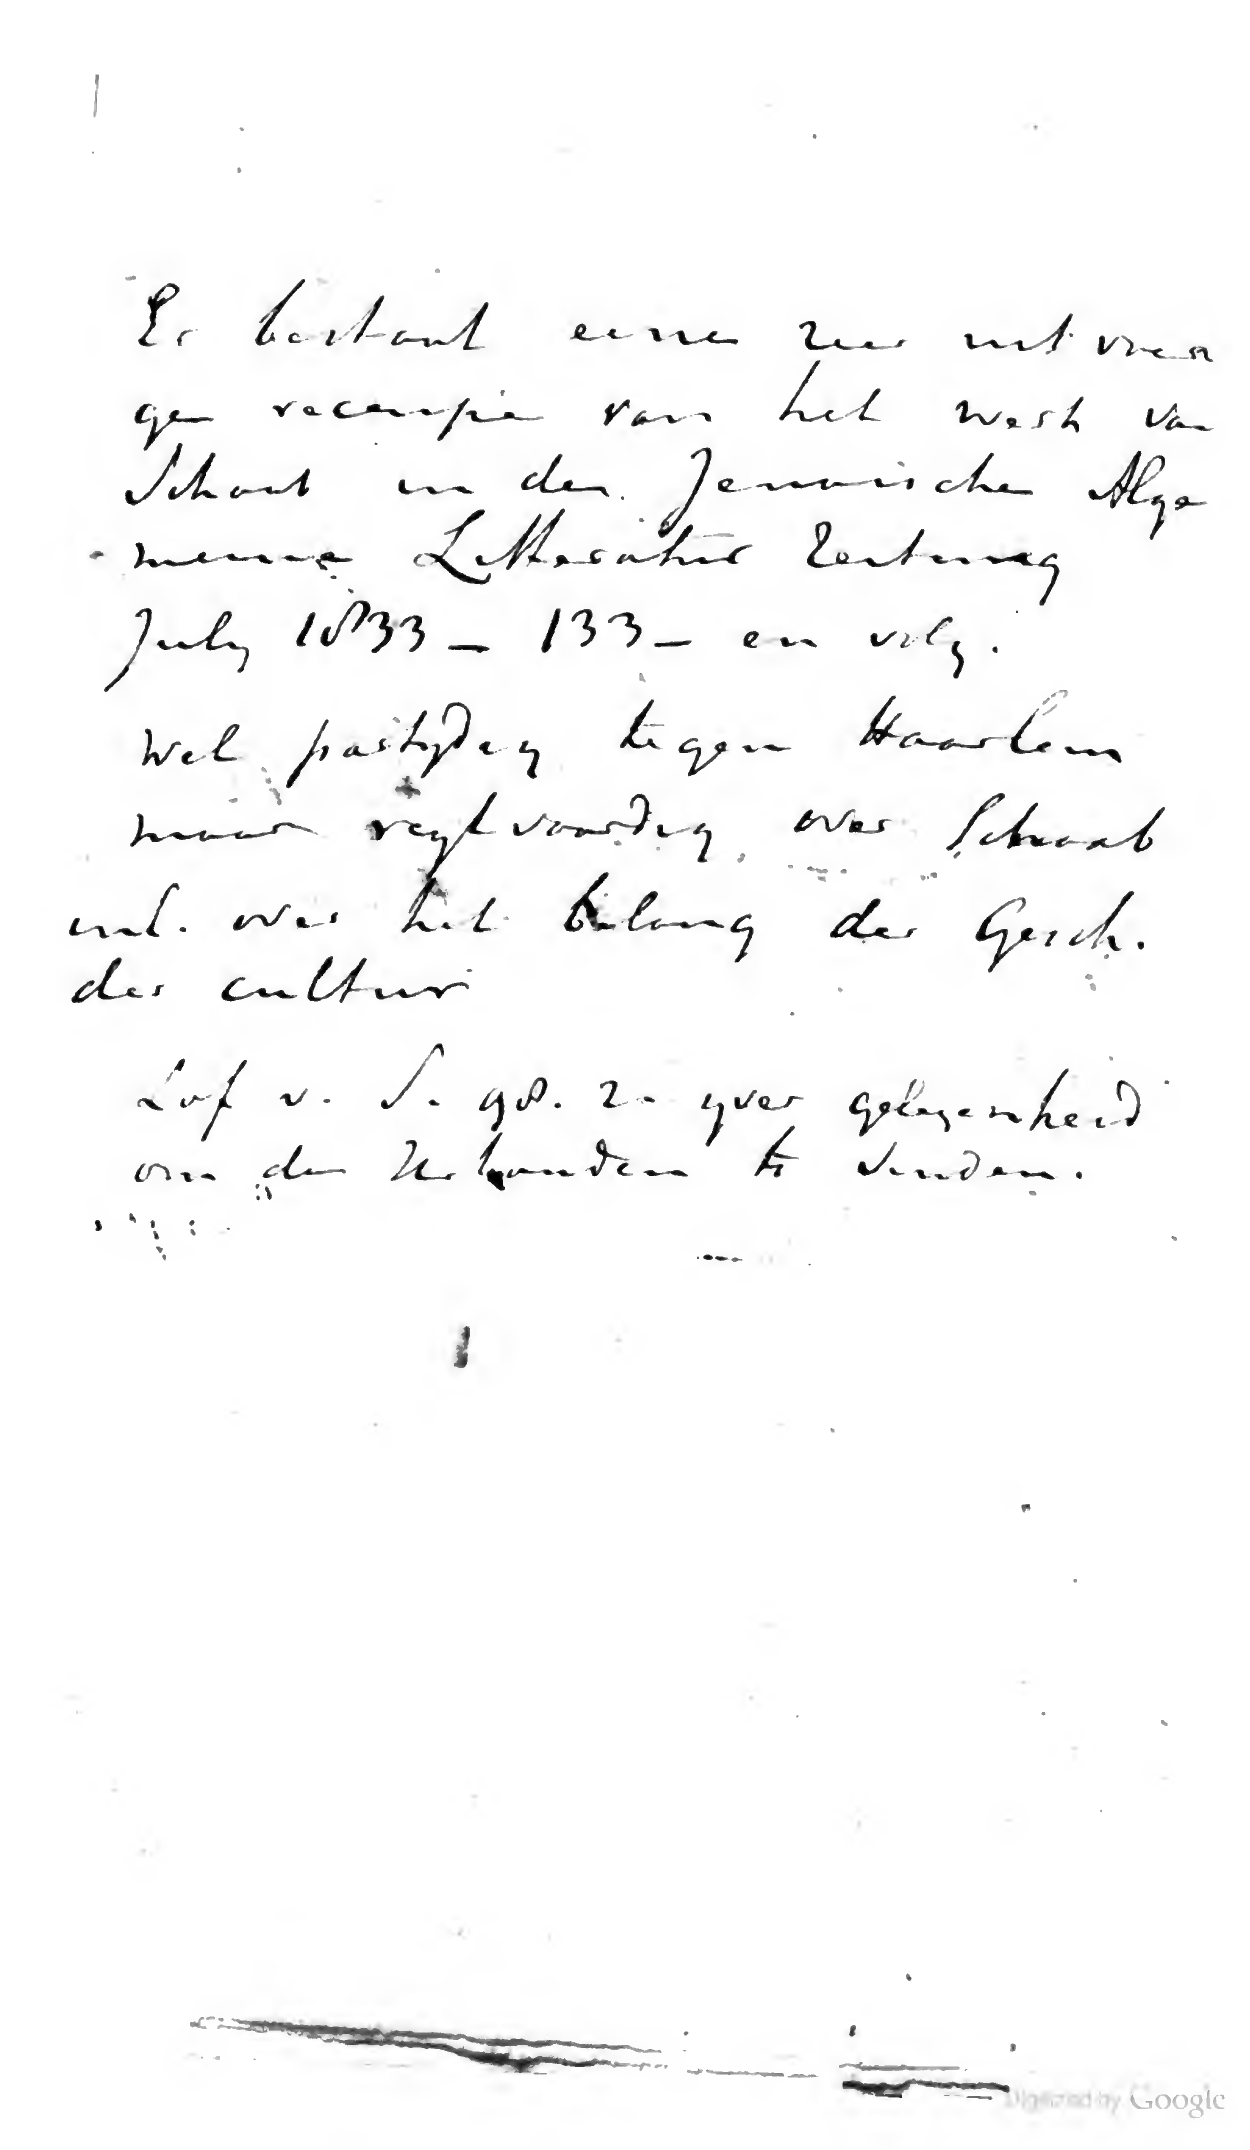 Er bestaat eene zeer uitvoeri
ge recensie van het werk van
Schaab in de Jenaische Alge
meine Litteratur Zeitung
July 1833 _ 133 _ en volg.
Wel partijdig tegen Haarlem
maar regtvaardig over Schaab
over het belang der Gesch.
der cultur
Lof v. S. 98. yver gelegenheid
om de Urkunden te vinden.
Digitized by Google